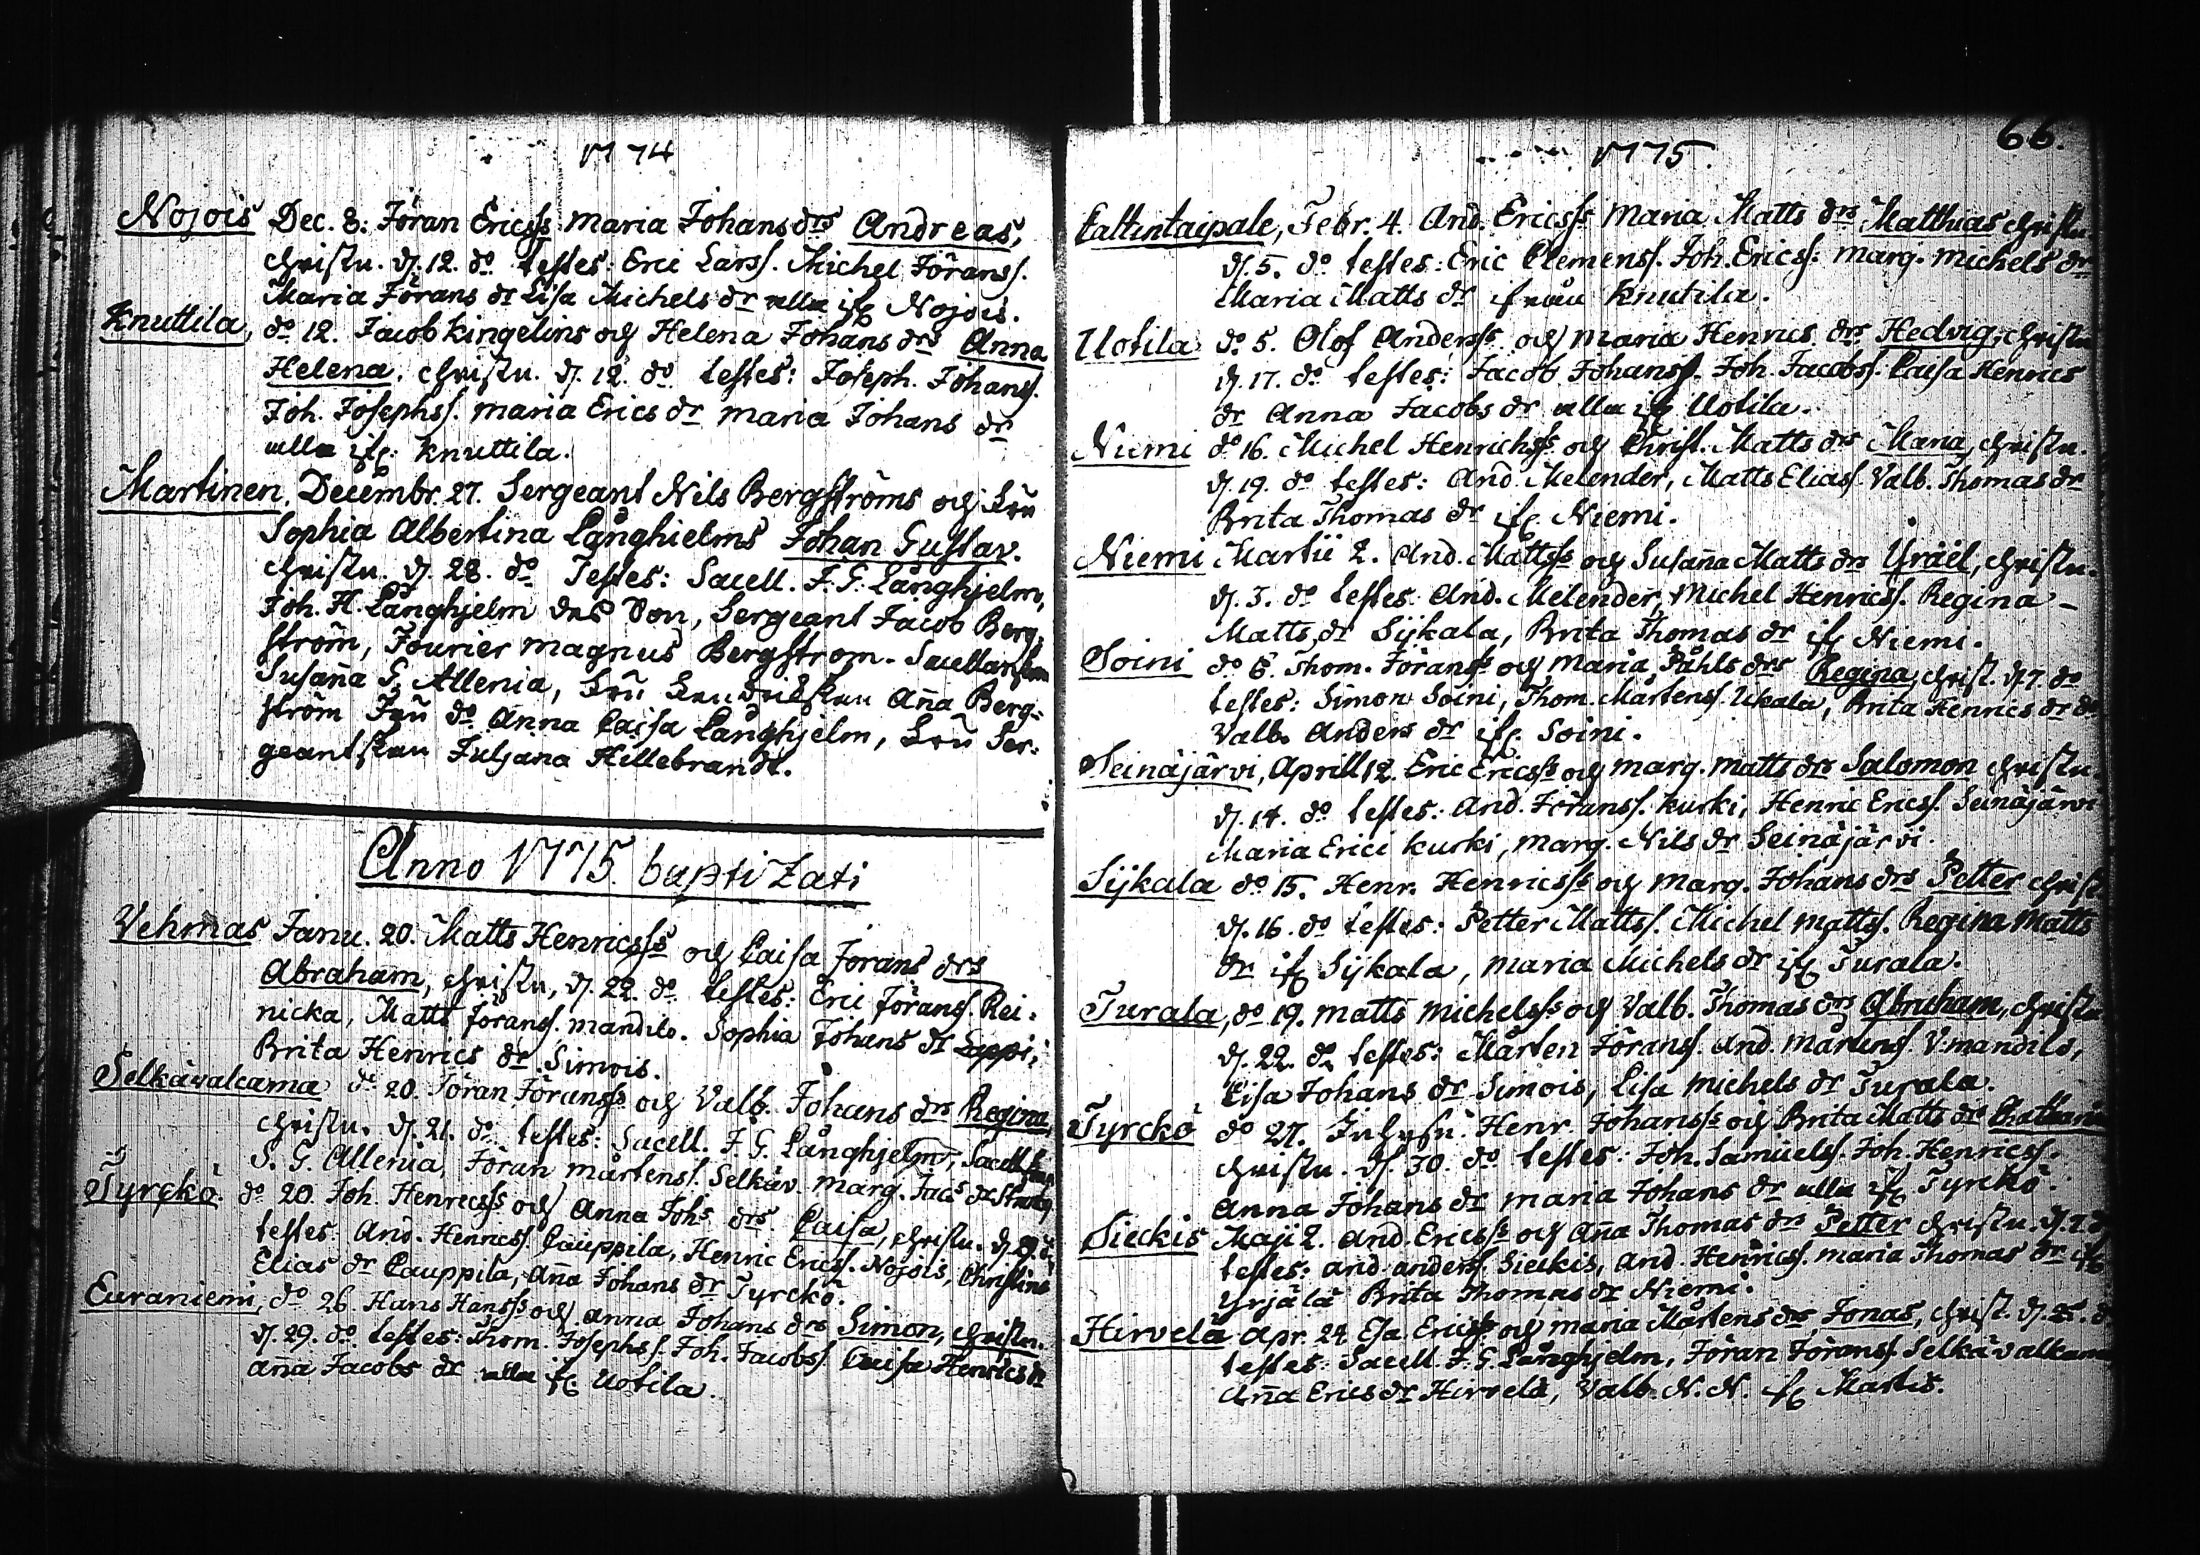 1774
Nojois Dec. 8: Jöran Ericss: Maria Johans drs Andreas,
christn. d. 12. do testes: Eric Larss. Michel Jöranss.
Maria Jörans dr Lisa Michels dr alla ifr. Nojois.
Knuttila, do 12. Jacob Kingelins och Helena Johans drs Anna
Helena. christn. d. 12. do testes: Joseph. Johanss.
Joh. Josephss. Maria Erics dr Maria Johans dr
alla ifr. Knuttila.
Martinen, Decembr. 27. Sergeant Nils Bergströms och Fru
Sophia Albertina Långhielms Johan Gustav.
christn. d. 28. do Testes: Sacell. F. G. Långhjelm,
Joh. H. Långhjelm des Son, Sergeant Jacob Berg-
ström, Fourier Magnus Bergström. Sacellanskan
Susaña G. Allenia, Fru Aña Berg-
ström Fru do Anna Caisa Långhjelm, Fru Ser-
geantskan Juljana Hillebrandt.
Anno 1775. baptizati
Vehmas Janu. 20. Matts Henricsss och Caisa Jörans drs
Abraham, christn, d. 22. do testes: Eric Jöranss. Rei-
nicka, Matts Jöranss. Mandilo. Sophia Johans dr Lappi,
Brita Henrics dr Simois.
Selkäwalcama do 20. Jöran Jöransss och Valb. Johans drs Regina,
christn. d. 21. do testes: Sacell. F. G. Långhjelm,
S. G. Allenia, Jöran Mårtenss. Selkäv. Marg. Jacs dr
Tyrckö do 20. Joh. Henricsss och Anna Johs drs Caisa, christn. d. 29. do
testes. And. Henricss. Cauppila, Henric Ericss. Nojois, Christina
Elias dr Cauppila, Aña Johans dr Tyrckö.
Euraniemi, do 26. Hans Hansss och Anna Johans drs Simon, christn.
d. 29. do testes: Thom. Josephss. Joh. Jacobss. Caisa Henrics dr
Aña Jacobs dr alla ifr. Uotila.
66.
1775.
Cattintaipale, Febr. 4. And. Ericsss Maria Matts drs Matthias christn.
d. 5. do testes: Eric Clemenss. Joh. Ericss: Marg. Michels dr
Maria Matts dr ifrån Knutila.
Uotila do 5. Olof Andersss och Maria Henrics drs Hedvig, christn
d. 17. do testes: Jacob Johanss. Joh. Jacobss. Caisa Henrics
dr Anna Jacobs dr alla ifr Uotila.
Niemi do 16. Michel Henrichsss och Christ. Matts drs Maria, christn.
d. 19. do testes: And. Melender, Matts Eliass. Valb. Thomas dr
Brita Thomas dr ifr. Niemi.
Niemi Martii 2. And. Mattsss och Susaña Matts drs Israël, christn.
d. 3. do testes: And. Melender, Michel Henricss. Regina
Matts dr Sijkala, Brita Thomas dr ifr Niemi.
Soini do 6. Thom. Jöransss och Maria Påhls drs Regina, christ. d. 7. do
testes: Simon Soini, Thom. Mårtenss. Ukala, Brita Henrics dr
Valb. Anders dr ifr. Soini.
Seinäjärvi, Aprill 12. Eric Ericsss och Marg. Matts drs Salomon christn.
d. 14. do testes: And. Jöranss. Kurki, Henric Ericss. Seinäjärvi
Maria Erici Kurki, Marg. Nils dr Seinäjärvi.
Sijkala do 15. Henr. Henricsss och Marg. Johans drs Petter christ
d. 16. do testes: Petter Mattss. Michel Mattss. Regina Matts
dr ifr Sijkala, Maria Michels dr ifr Turala.
Turala, do 19. Matts Michelsss och Valb. Thomas drs Abraham, christn
d. 22. do testes: Mårten Jöranss. And. Mårtenss. V. Mandilo,
Lisa Johans dr Simois, Lisa Michels dr Turala.
Tyrckö do 27. Henr. Johansss och Brita Matts drs Chatharina
christn. d. 30. do testes: Joh. Samuelss. Joh. Henricss.
Anna Johans dr Maria Johans dr alla ifr Tyrckö.
Sieckis Maji 2. And. Ericsss och Aña Thomas drs Petter christn. d. 2. do
testes: And. Anderss. Sieckis, And. Henricss. Maria Thomas dr ifr
Yrjälä Brita Thomas dr Niemi.
Hirvelä Apr. 24 Esa. Ericsss och Maria Mårtens drs Jonas, christ. d. 25. do
testes: Sacell. F. G. Långhjelm, Jöran Jöranss. Selkävalkama
Aña Erics dr Hirvelä, Valb. N. N. ifr Martis.